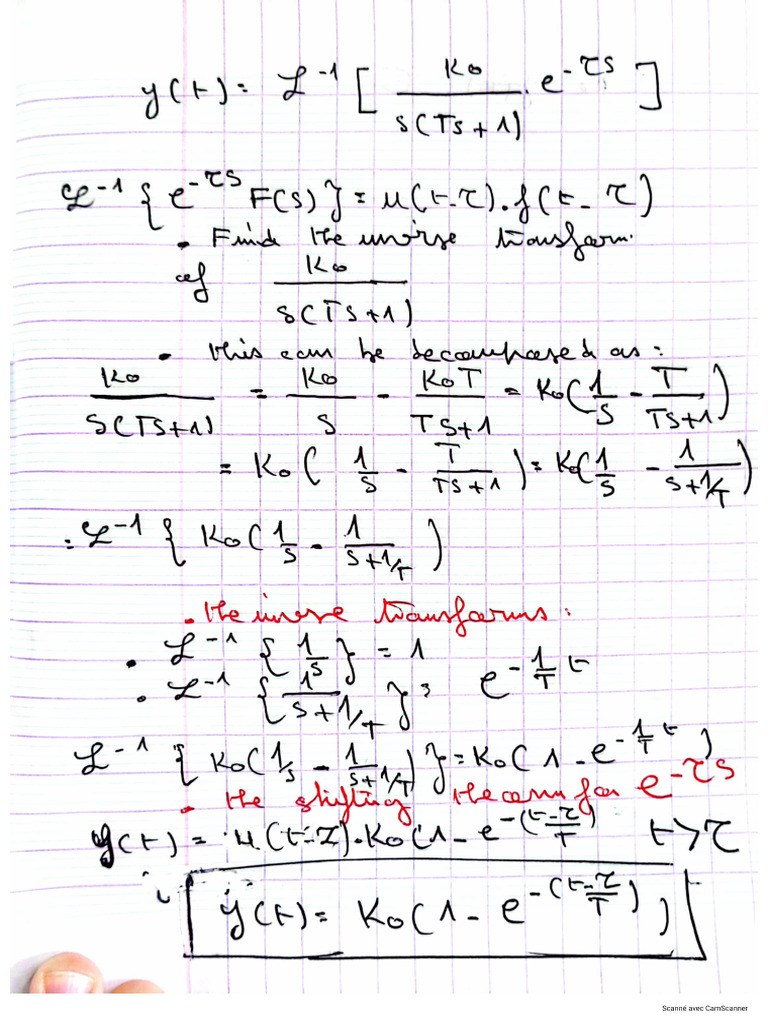 y(t) = ℒ⁻¹ [ K₀ / S(TS+1) · e^(-τS) ]
ℒ⁻¹ { e^(-τS) F(S) } = u(t-τ) . f(t-τ)
• Find the inverse transform.
of K₀ / S(TS+1)
• this can be decomposed as:
K₀ / S(TS+1) = K₀/S - K₀T / TS+1 = K₀( 1/S - T / TS+1 )
= K₀( 1/S - T / TS+1 ) = K₀( 1/S - 1 / S+1/T )
= ℒ⁻¹ { K₀( 1/S - 1 / S+1/T )
• the inverse transforms:
• ℒ⁻¹ { 1/S } = 1
• ℒ⁻¹ { 1 / S+1/T } = e^(-1/T t)
ℒ⁻¹ { K₀( 1/S - 1 / S+1/T ) } = K₀( 1 - e^(-1/T t) )
• the shifting theorem for e^(-τS)
y(t) = u(t-τ) . K₀( 1 - e^(-(t-τ)/T) t>τ
y(t) = K₀( 1 - e^(-(t-τ)/T) )
Scanné avec CamScanner